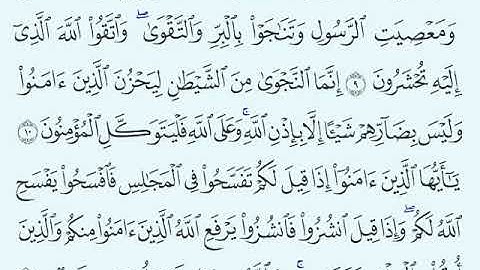 وَمَعْصِيَتِ ٱلرَّسُولِ وَتَنَٰجَوْا۟ بِٱلْبِرِّ وَٱلتَّقْوَىٰ ۖ وَٱتَّقُوا۟ ٱللَّهَ ٱلَّذِىٓ
إِلَيْهِ تُحْشَرُونَ ٩ إِنَّمَا ٱلنَّجْوَىٰ مِنَ ٱلشَّيْطَٰنِ لِيَحْزُنَ ٱلَّذِينَ ءَامَنُوا۟
وَلَيْسَ بِضَآرِّهِمْ شَيْـًٔا إِلَّا بِإِذْنِ ٱللَّهِ ۚ وَعَلَى ٱللَّهِ فَلْيَتَوَكَّلِ ٱلْمُؤْمِنُونَ ١٠
يَٰٓأَيُّهَا ٱلَّذِينَ ءَامَنُوٓا۟ إِذَا قِيلَ لَكُمْ تَفَسَّحُوا۟ فِى ٱلْمَجَٰلِسِ فَٱفْسَحُوا۟ يَفْسَحِ
ٱللَّهُ لَكُمْ ۖ وَإِذَا قِيلَ ٱنشُزُوا۟ فَٱنشُزُوا۟ يَرْفَعِ ٱللَّهُ ٱلَّذِينَ ءَامَنُوا۟ مِنكُمْ وَٱلَّذِينَ